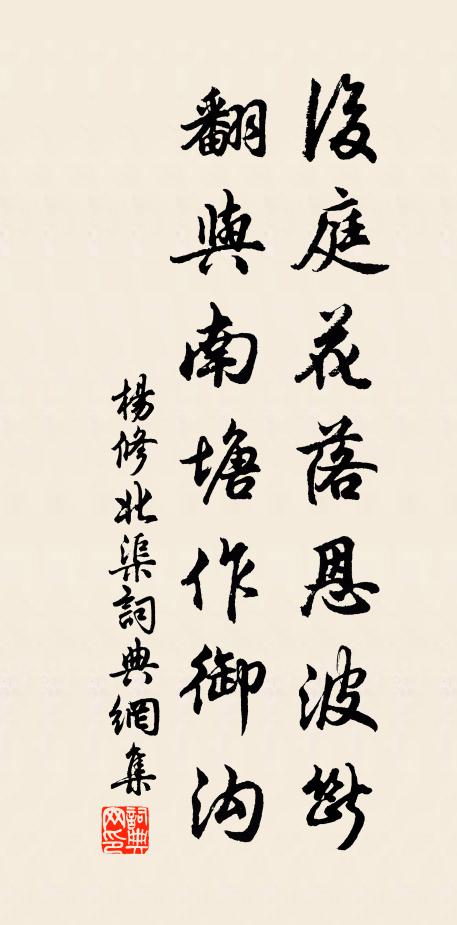 後庭花落恩波斷
翻與南塘作御溝
楊修北渠詞典網集
詞典网印